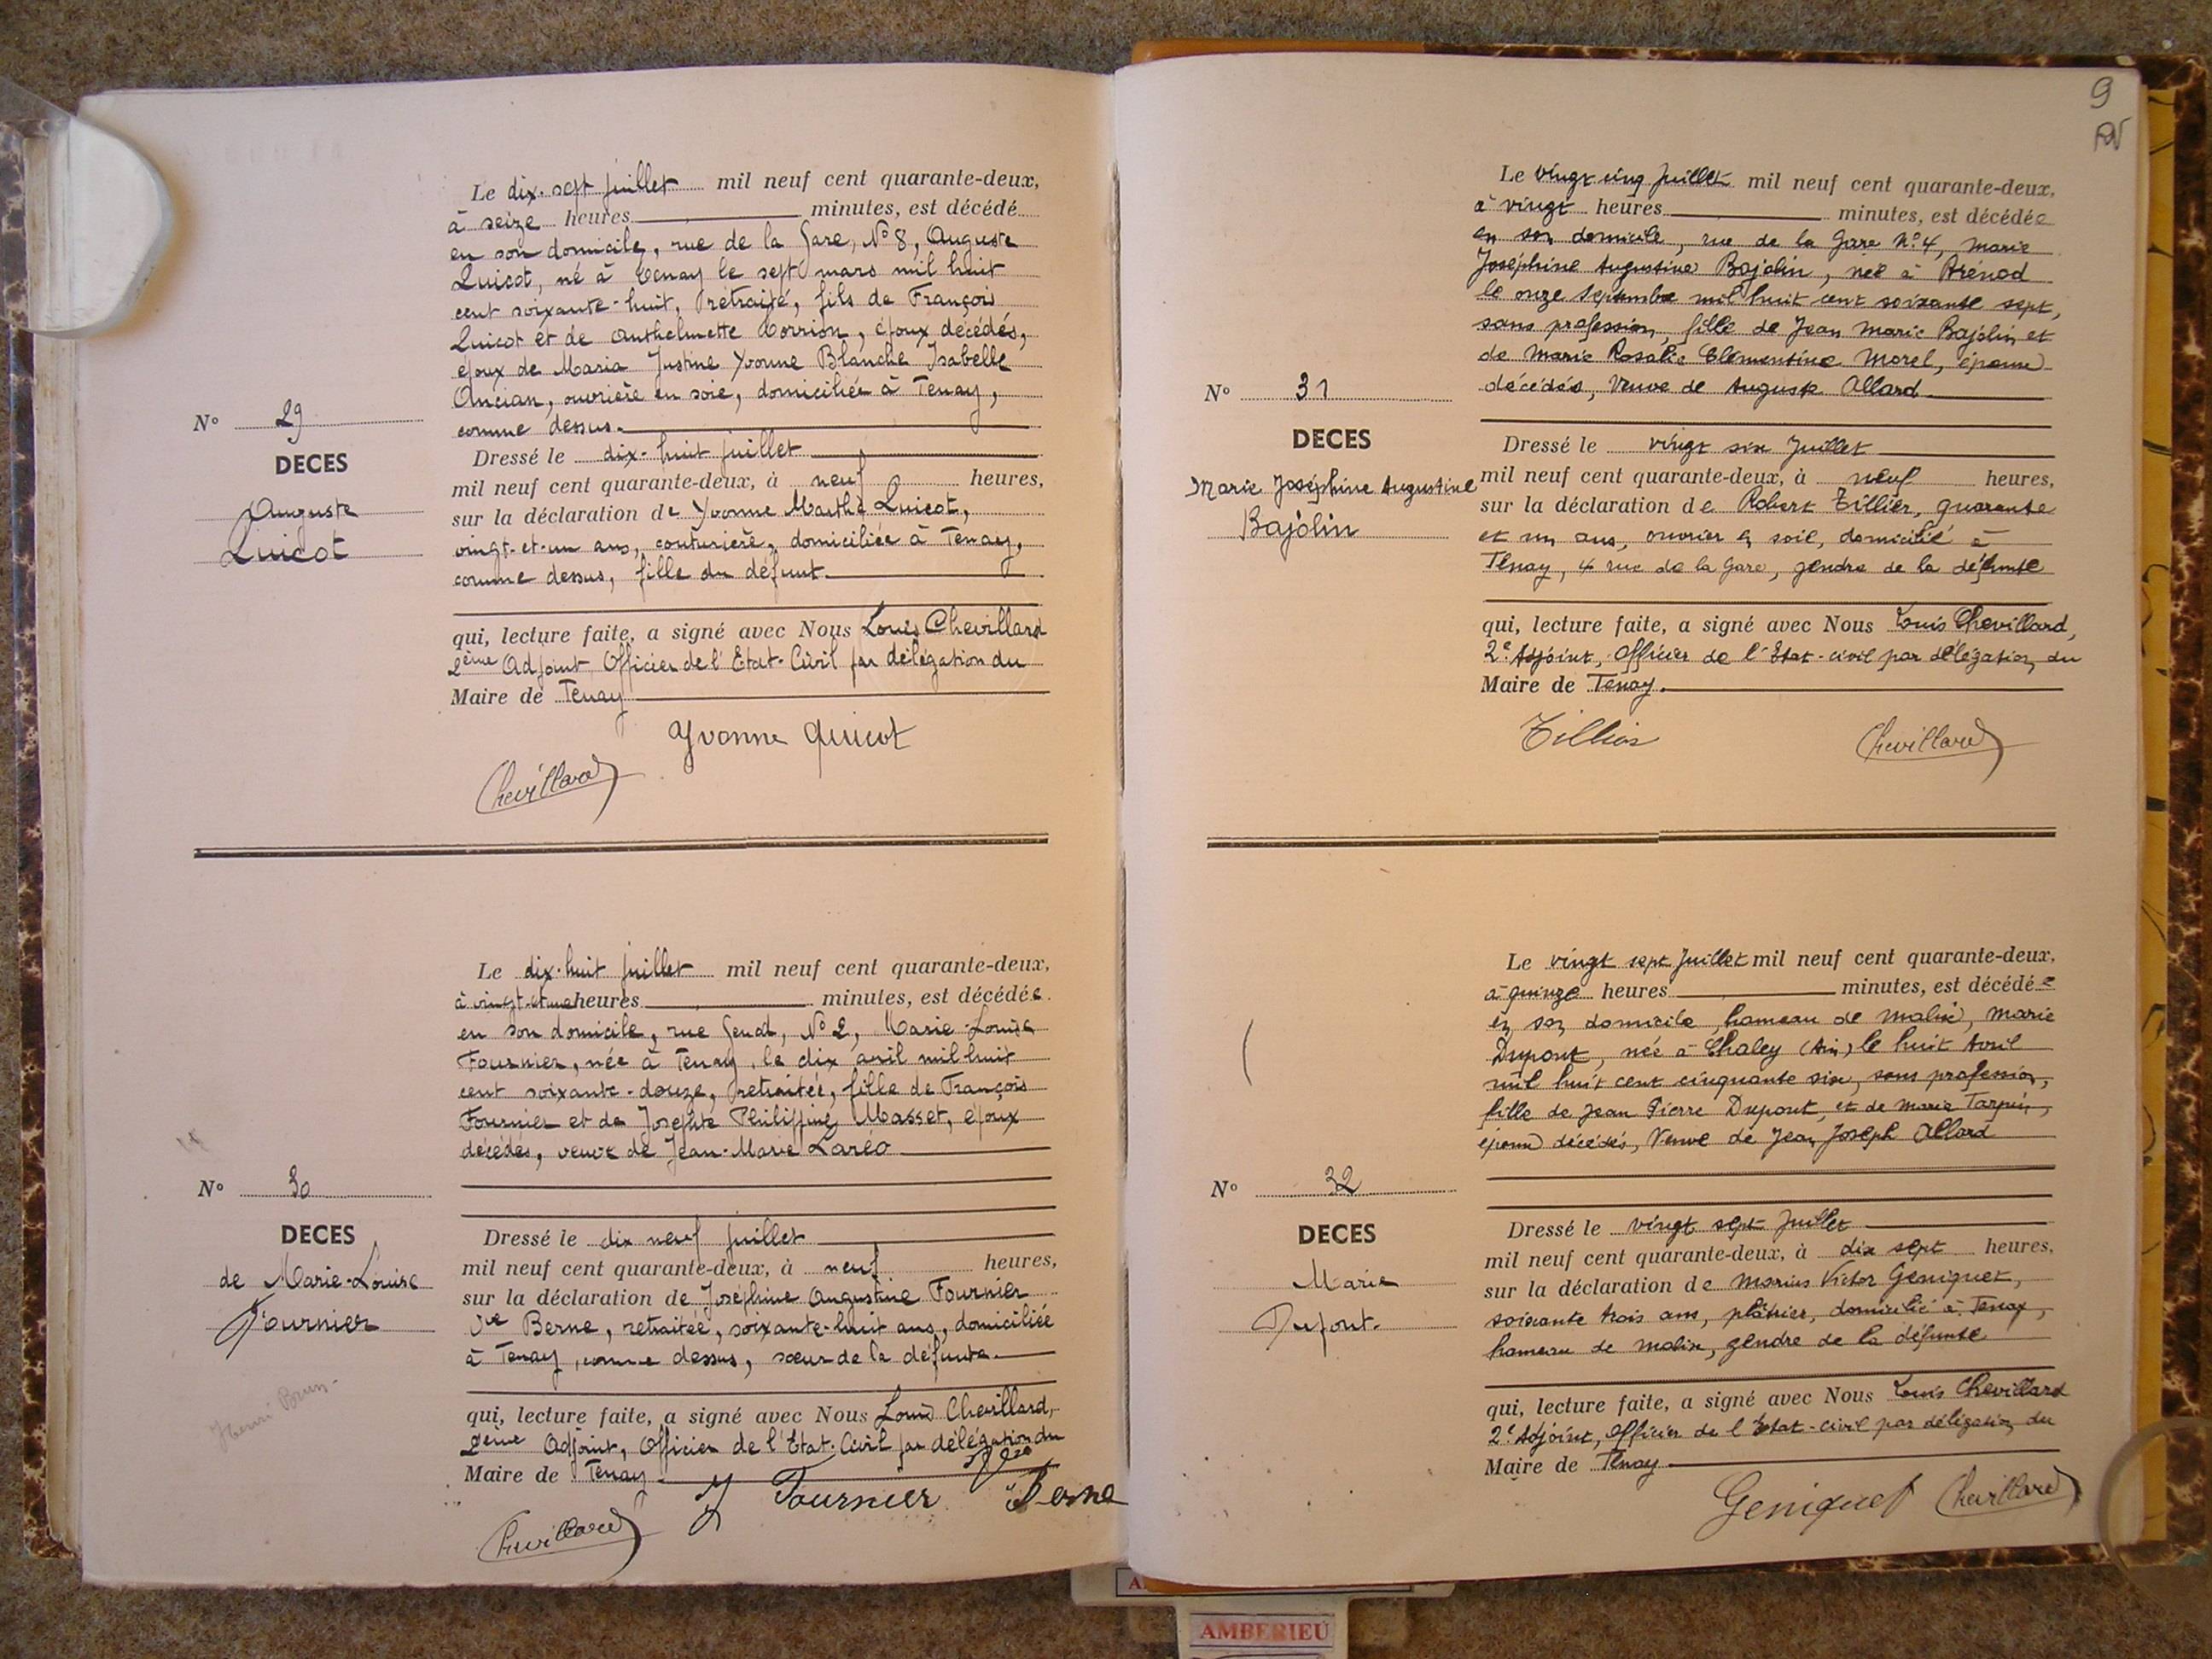 Le dix-sept juillet mil neuf cent quarante-deux,
à seize heures minutes, est décédé
en son domicile, rue de la Gare, N° 8, Auguste
Quicot, né à Tenay le sept mars mil huit
cent soixante-huit, retraité, fils de François
Quicot et de Anthelmette Corrion, époux décédés,
époux de Maria Justine Yvonne Blanche Isabelle
Ancian, ouvrière en soie, domiciliée à Tenay,
comme dessus.
N° 29
DECES
Auguste
Quicot
Dressé le dix-huit juillet
mil neuf cent quarante-deux, à neuf heures,
sur la déclaration de Yvonne Marthe Quicot,
vingt-et-un ans, couturière, domiciliée à Tenay,
comme dessus, fille du défunt.
qui, lecture faite, a signé avec Nous Louis Chevillard
2ème Adjoint, Officier de l'Etat-Civil par délégation du
Maire de Tenay
Yvonne Quicot
Chevillard
Le dix-huit juillet mil neuf cent quarante-deux,
à vingt-et-une heures minutes, est décédée
en son domicile, rue Genod, N° 2, Marie-Louise
Fournier, née à Tenay, le dix avril mil huit
cent soixante-douze, retraitée, fille de François
Fournier et de Josephte Philippine Masset, époux
décédés, veuve de Jean-Marie Laréo
N° 30
DECES
de Marie-Louise
Fournier
Henri Brun
Dressé le dix neuf juillet
mil neuf cent quarante-deux, à neuf heures,
sur la déclaration de Joséphine Augustine Fournier
Vve Berne, retraitée, soixante-huit ans, domiciliée
à Tenay, comme dessus, sœur de la défunte.
qui, lecture faite, a signé avec Nous Louis Chevillard,
2ème Adjoint, Officier de l'Etat-Civil par délégation du
Maire de Tenay
J Fournier Vve Berne
Chevillard
9
Le vingt cinq Juillet mil neuf cent quarante-deux,
à vingt heures minutes, est décédée
en son domicile, rue de la Gare N° 4, Marie
Joséphine Augustine Bajolin, née à Brénod
le onze septembre mil huit cent soixante sept,
sans profession, fille de Jean Marie Bajolin et
de Marie Rosalie Clémentine Morel, époux
décédés, Veuve de Auguste Allard
N° 31
DECES
Marie Joséphine Augustine
Bajolin
Dressé le vingt six Juillet
mil neuf cent quarante-deux, à neuf heures,
sur la déclaration de Robert Tillier, quarante
et un ans, ouvrier en soie, domicilié à
Tenay, 4 rue de la Gare, gendre de la défunte
qui, lecture faite, a signé avec Nous Louis Chevillard,
2e Adjoint, Officier de l'Etat-civil par délégation du
Maire de Tenay.
Tillier Chevillard
Le vingt sept Juillet mil neuf cent quarante-deux,
à quinze heures minutes, est décédée
en son domicile, hameau de Malix, Marie
Dupont, née à Chaley (Ain) le huit Avril
mil huit cent cinquante six, sans profession,
fille de Jean Pierre Dupont, et de Marie Tarpin,
époux décédés, Veuve de Jean Joseph Allard
N° 32
DECES
Marie
Dupont.
Dressé le vingt sept Juillet
mil neuf cent quarante-deux, à dix sept heures,
sur la déclaration de Marius Victor Geniquet,
soixante trois ans, plâtrier, domicilié à Tenay,
hameau de Malix, gendre de la défunte
qui, lecture faite, a signé avec Nous Louis Chevillard
2e Adjoint, Officier de l'Etat-civil par délégation du
Maire de Tenay
Geniquet Chevillard
AMBERIEU